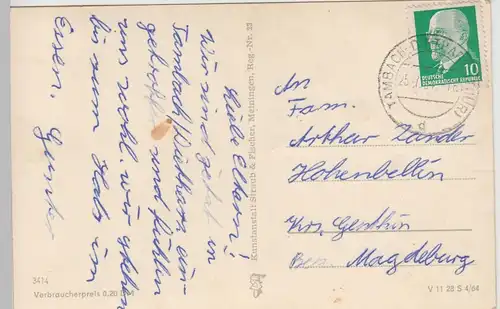 Liebe Eltern!
Wir sind jetzt in
Tambach/Dietharz, ein-
getroffen und fühlen
uns wohl. Wir stehen
bis zum Hals im
Essen. Gunter
Kunstanstalt Straub & Fischer, Meiningen, Reg.-Nr. 33
3414
Verbraucherpreis 0,20 DM
10
DEUTSCHE
DEMOKRATISCHE REPUBLIK
TAMBACH-DIETHARZ
An
Fam.
Arthur Zander
Hohenbellin
Krs. Genthin
Bez. Magdeburg
V 11 28 S 4/64